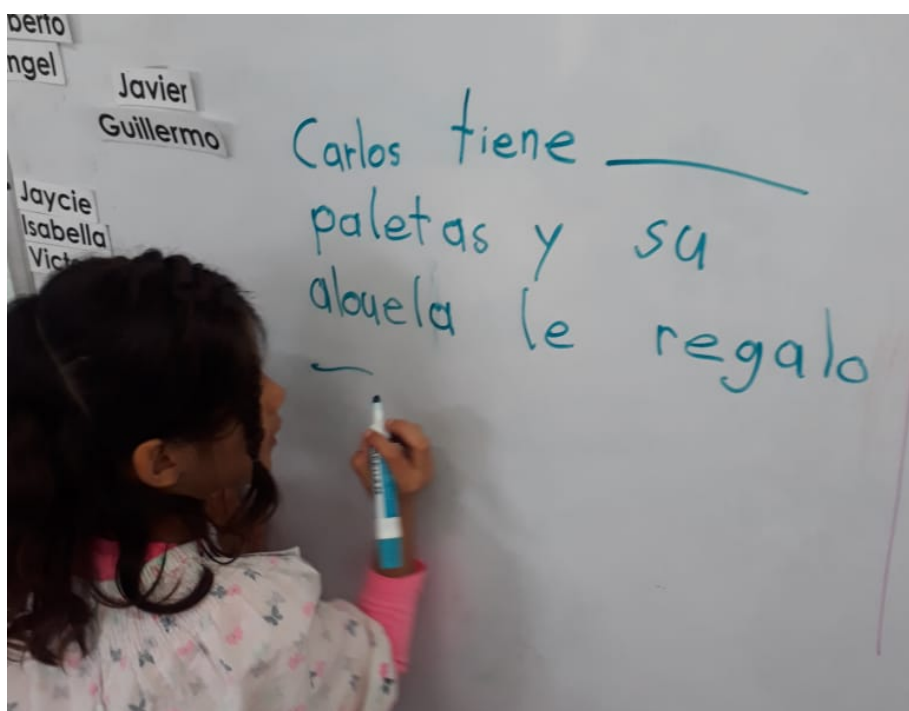 Javier
Guillermo
Jaycie
Isabella
Carlos tiene
paletas y su
abuela le regalo